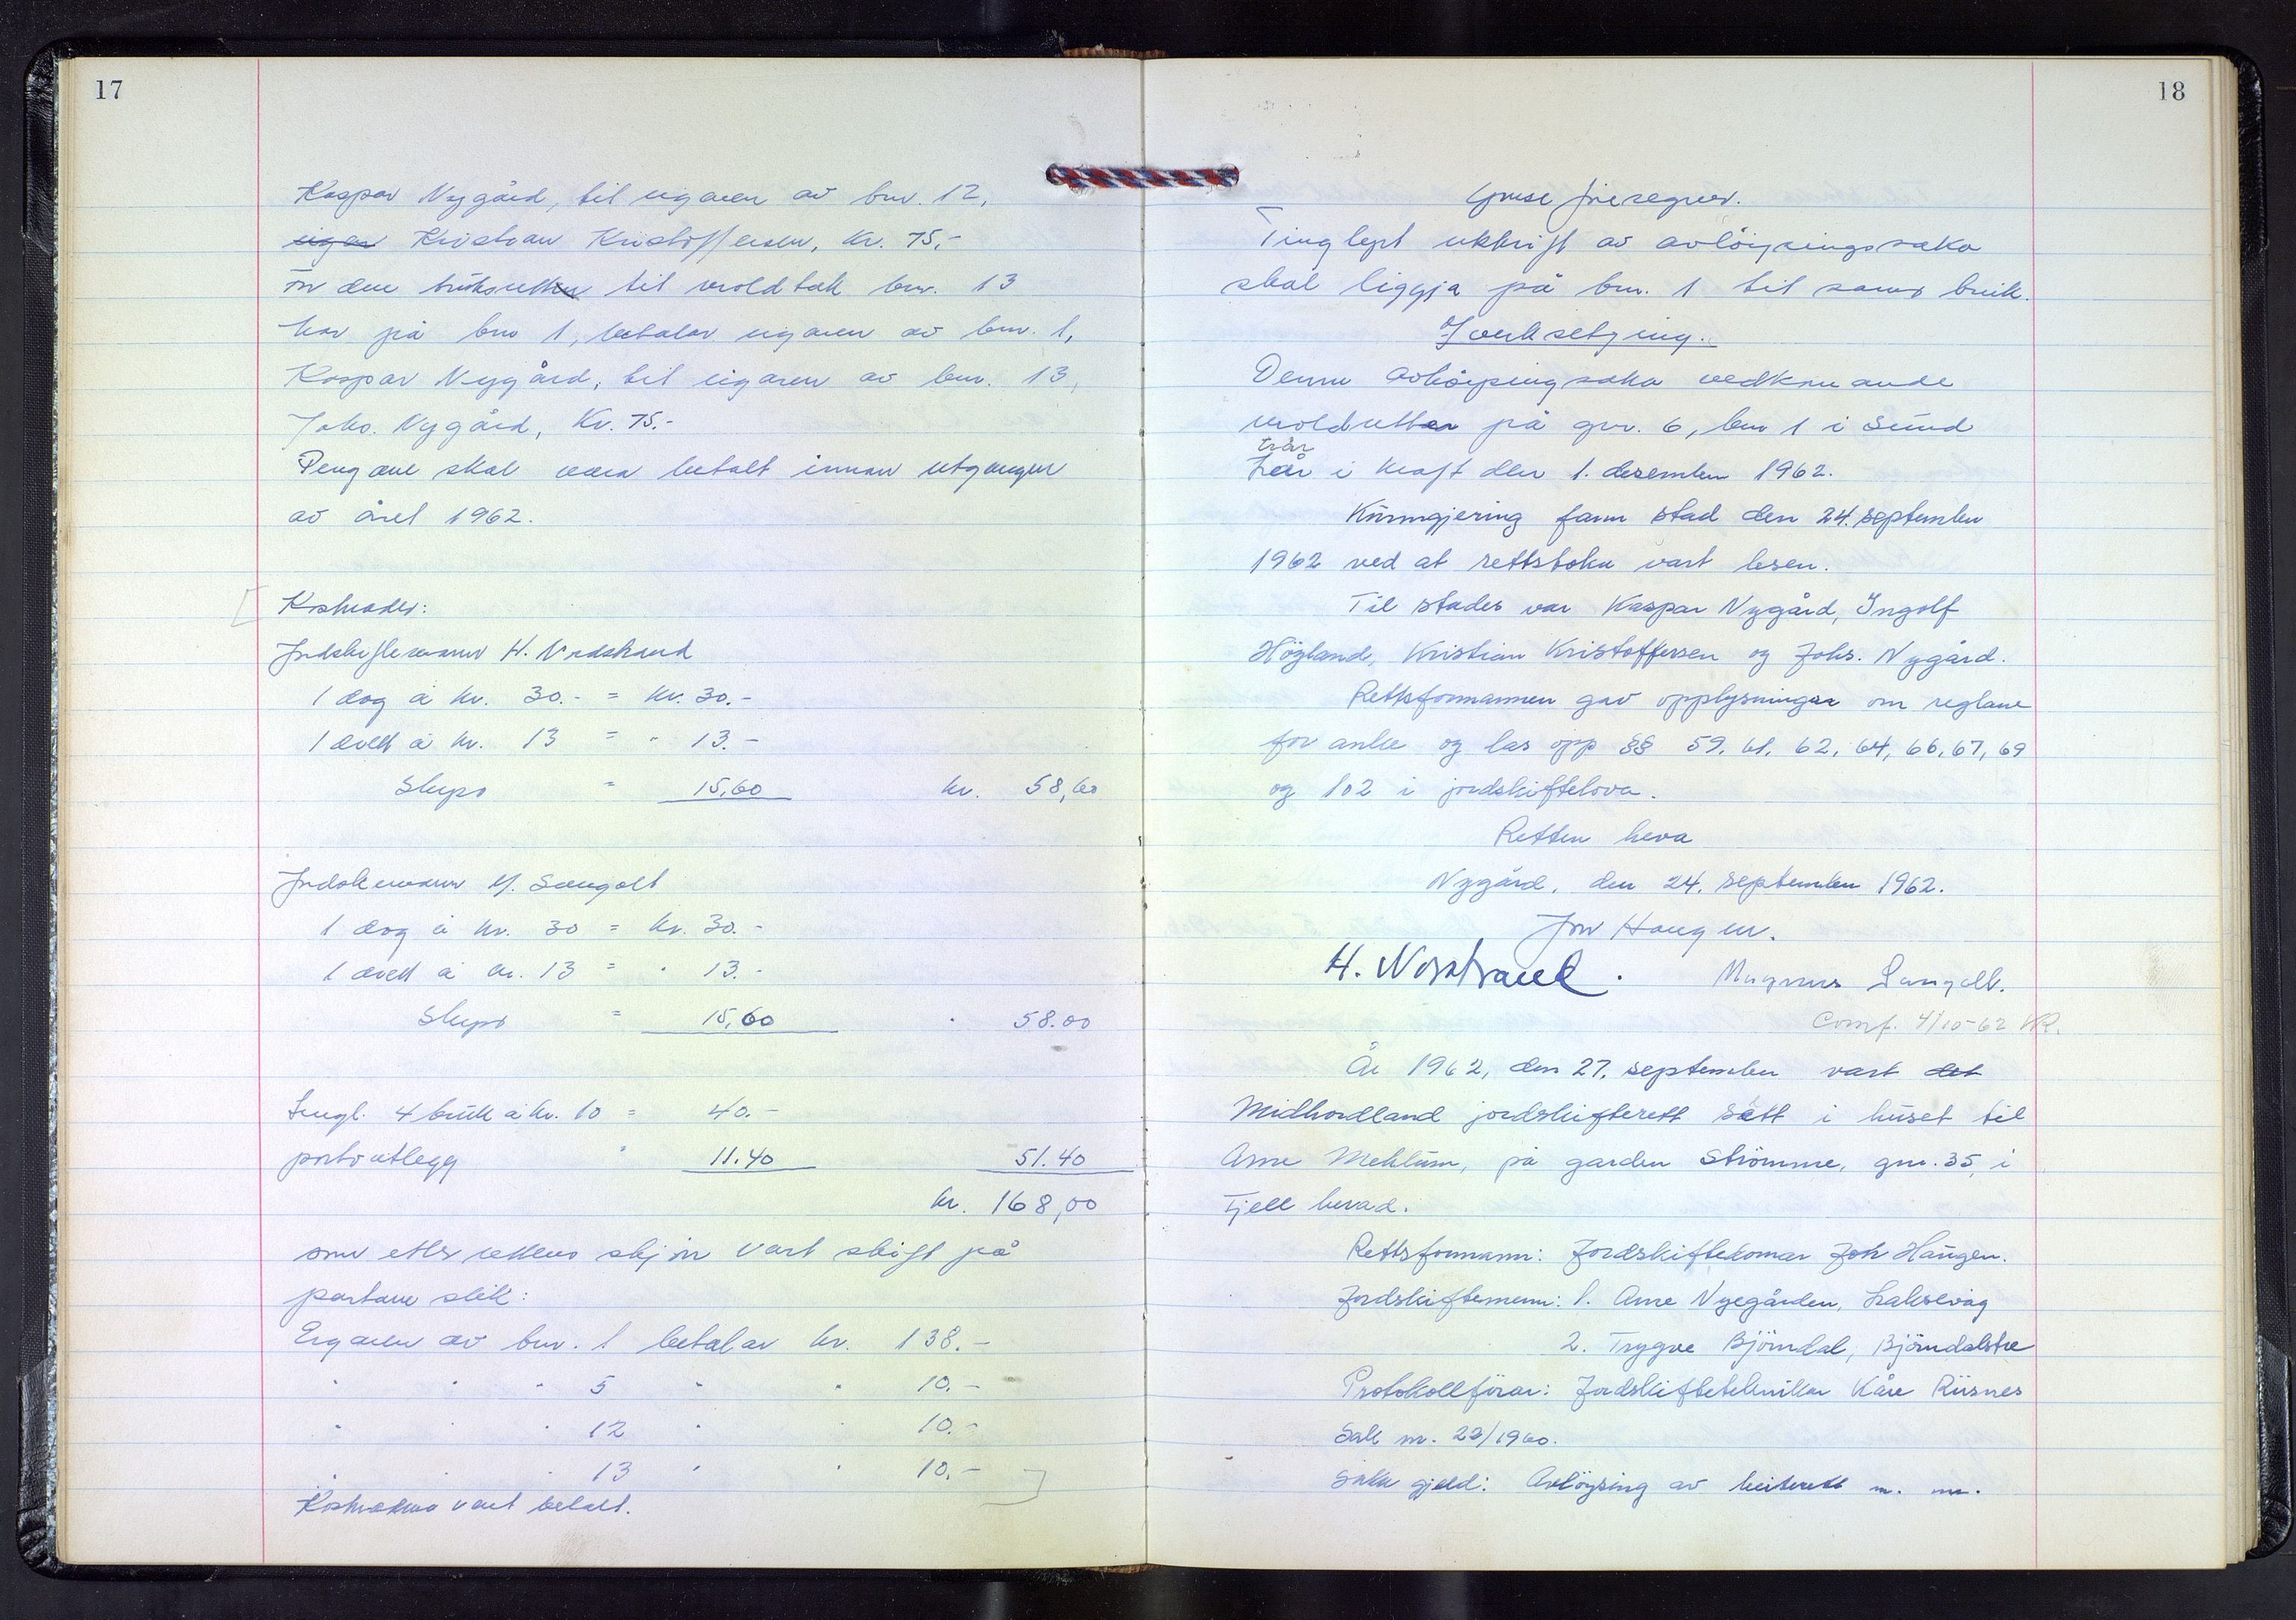 17
Kaspar Nygård, til eigaren av bnr. 12,
eigar Kristian Kristoffersen, kr. 75,-
For den bruksretten til moldtak bnr. 13
har på bnr 1, betalar eigaren av bnr. 1,
Kaspar Nygård, til eigaren av bnr. 13,
Johs. Nygård, Kr. 75.-
Pengane skal vera betalt innan utgangen
av året 1962.
Kostnader:
Jordskiftemann H. Nordstrand
1 dag à kr. 30.- = kr. 30.-
1 diett à kr. 13 = " 13.-
Skyss = 15,60 kr. 58,60
Jordskemann M. Sangolt
1 dag à kr. 30 = kr. 30.-
1 diett à kr. 13 = " 13.-
Skyss = 15,60 " 58.00
Tingl. 4 bruk à kr. 10 = 40.-
portoutlegg " 11.40 51.40
kr. 168,00
som etter rettens skjøn vart skift på
partane slik:
Eigaren av bnr. 1 betalar kr. 138.-
" " " 5 " " 10.-
" " " 12 " " 10.-
" " " 13 " " 10.-
Kostnadene vart betalt.
18
Grense
Tinglyst utskrift av avløysingssaka
skal liggja på bnr. 1 til sams bruk.
Iverksetjing.
Denne avløysingsaka vedkomande
moldretter på gnr. 6, bnr 1 i Sund
trår
trår i kraft den 1. desember 1962.
Kunngjering fann stad den 24. september
1962 ved at rettsboka vart lesen.
Til stades var Kaspar Nygård, Ingolf
Högland, Kristian Kristoffersen og Johs. Nygård.
Rettsformannen gav opplysningar om reglane
for anke og las opp §§ 59, 61, 62, 64, 66, 67, 69
og 102 i jordskiftelova.
Retten heva
Nygård, den 24. september 1962.
Jon Haugen.
H. Nordstrand. Magnus Sangolt.
Conf. 4/10-62 KR.
År 1962, den 27. september vart det
Midhordland jordskifterett sett i huset til
Arne Mehlum, på garden Strömme, gnr. 35, i
Fjell herad.
Rettsformann: Jordskiftedomar Jon Haugen.
Jordskiftemenn: 1. Arne Nyegården, Laksevåg
2. Trygve Björndal, Björndalstre
Protokollförar: Jordskifteteknikar Kåre Risnes
Sak nr. 23/1960.
Saka gjeld: Avlöysing av beiterett m. m.